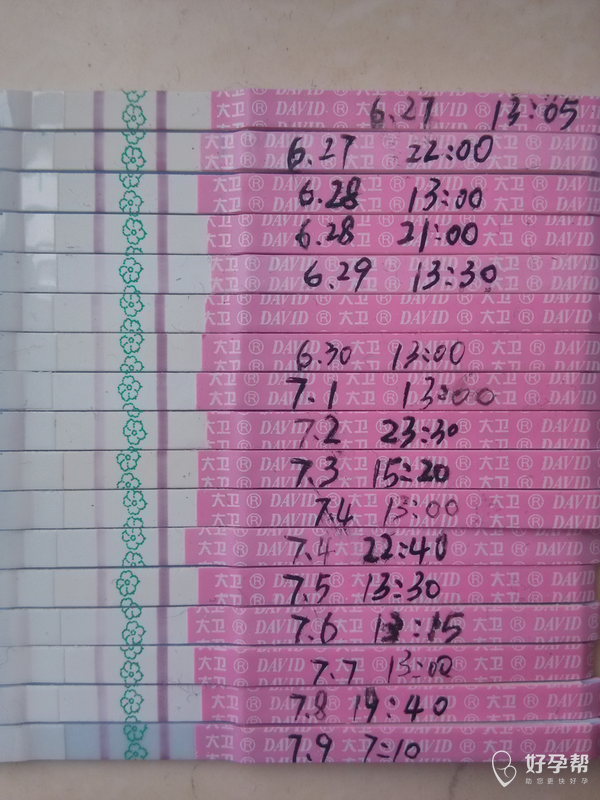 大卫 ® DAVID 6.27 13:05
大卫 ® DAVID 6.27 22:00
大卫 ® DAVID 6.28 13:00
大卫 ® DAVID 6.28 21:00
大卫 ® DAVID 6.29 13:30
大卫 ® DAVID
大卫 ® DAVID 6.30 13:00
大卫 ® DAVID 7.1 13:00
大卫 ® DAVID 7.2 23:30
大卫 ® DAVID 7.3 15:20
大卫 ® DAVID 7.4 13:00
大卫 ® DAVID 7.4 22:40
大卫 ® DAVID 7.5 13:30
大卫 ® DAVID 7.6 :15
大卫 ® DAVID 7.7 13:00
大卫 ® DAVID 7.8 19:40
大卫 ® DAVID 7.9 7:10
好孕帮
助您更快好孕